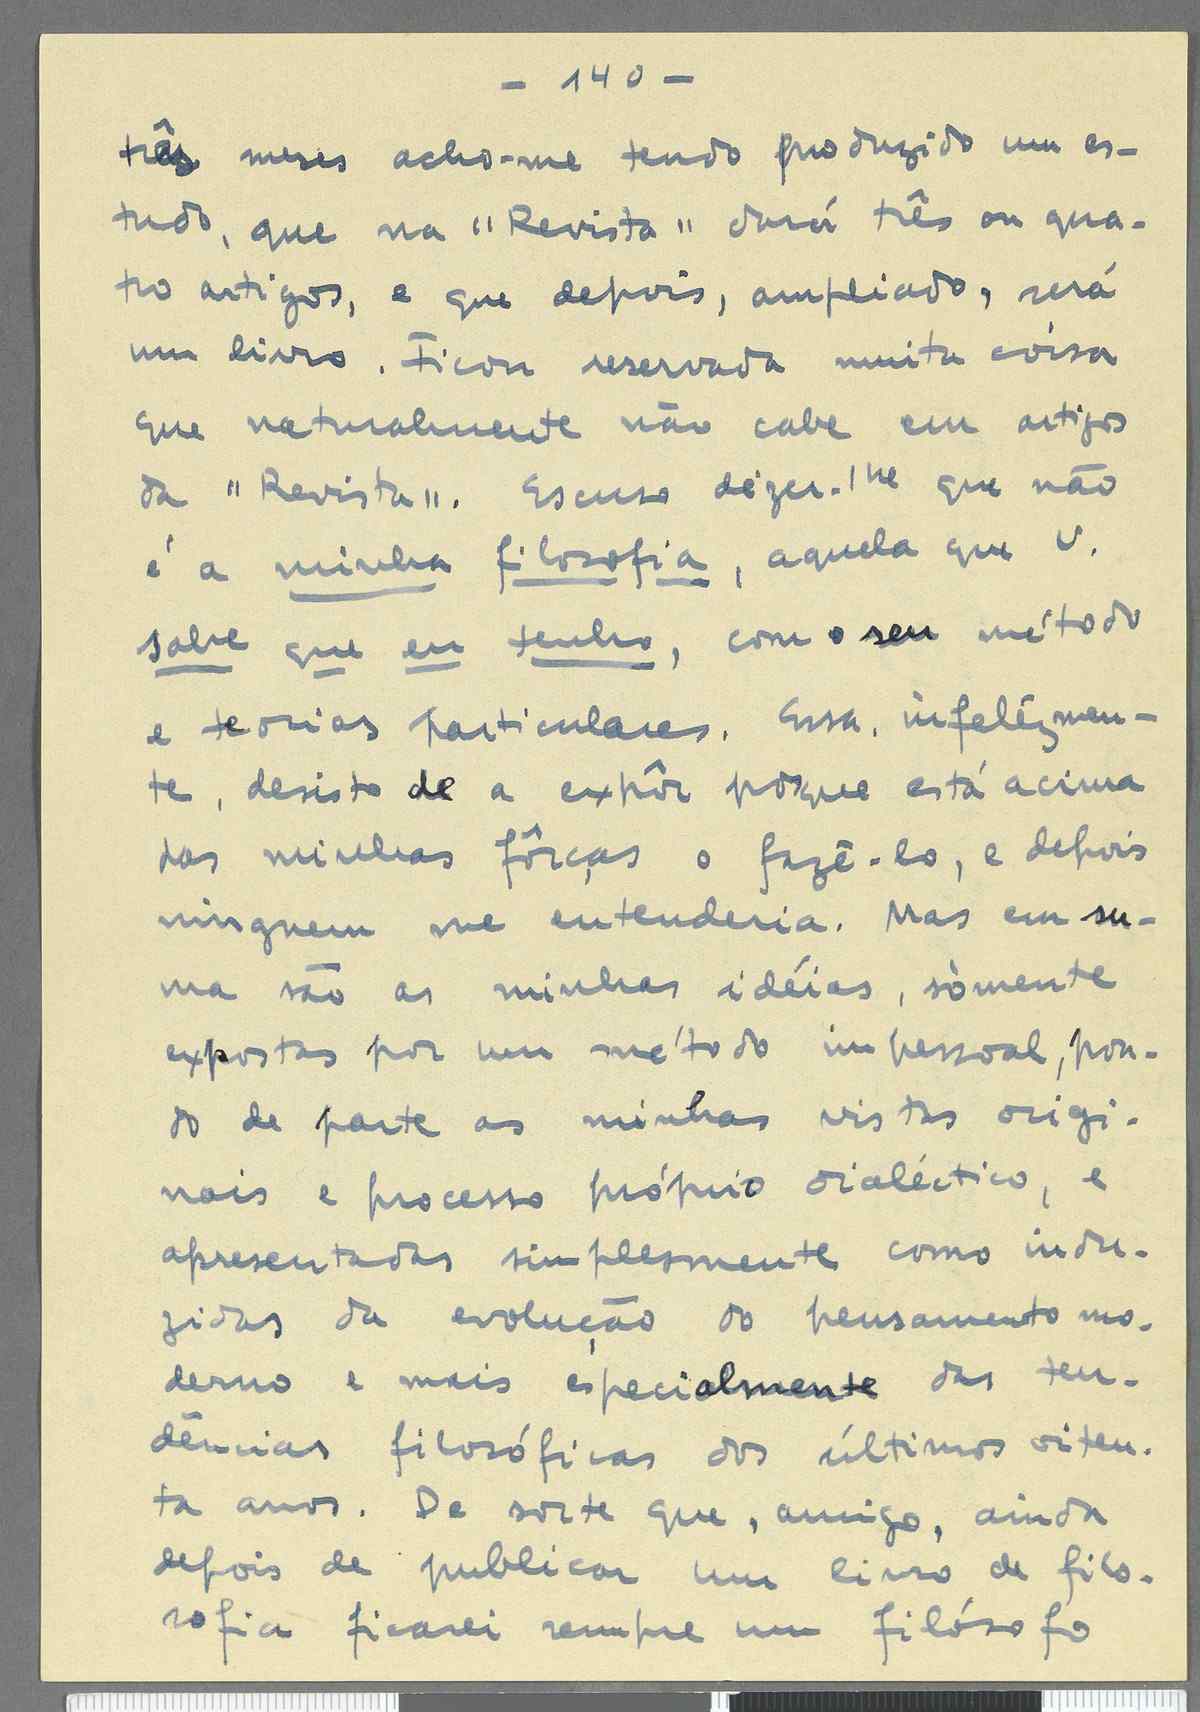 - 140 -
três meses acho-me tendo produzido um es-
tudo, que na "Revista" dará três ou qua-
tro artigos, e que depois, ampliado, será
um livro. Ficou reservada muita cóisa
que naturalmente não cabe em artigos
da "Revista". Escuso dizer-lhe que não
é a minha filosofia, aquela que V.
sabe que eu tenho, com o seu método
e teorias particulares. Essa, infelizmen-
te, desisto de a expôr porque está acima
das minhas fôrças o fazê-lo, e depois
ninguem me entenderia. Mas em su-
ma são as minhas idéias, sòmente
expostas por um método impessoal, pon-
do de parte as minhas vistas origi-
nais e processo próprio dialéctico, e
apresentadas simplesmente como indu-
zidas da evolução do pensamento mo-
derno e mais especialmente das ten-
dências filosóficas dos últimos oiten-
ta anos. De sorte que, amigo, ainda
depois de publicar um livro de filo-
sofia ficarei sempre um filósofo